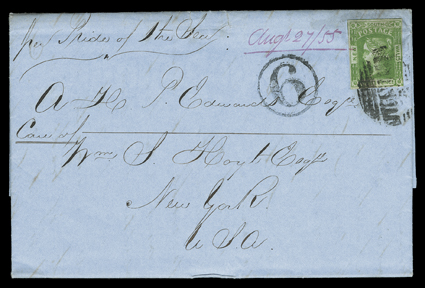 per Pride of the Sea. Augt 27/55
POSTAGE
6
A H. P. Edwards Esqr
Care of
Wm S. Hoyt Esqr
New York
USA.